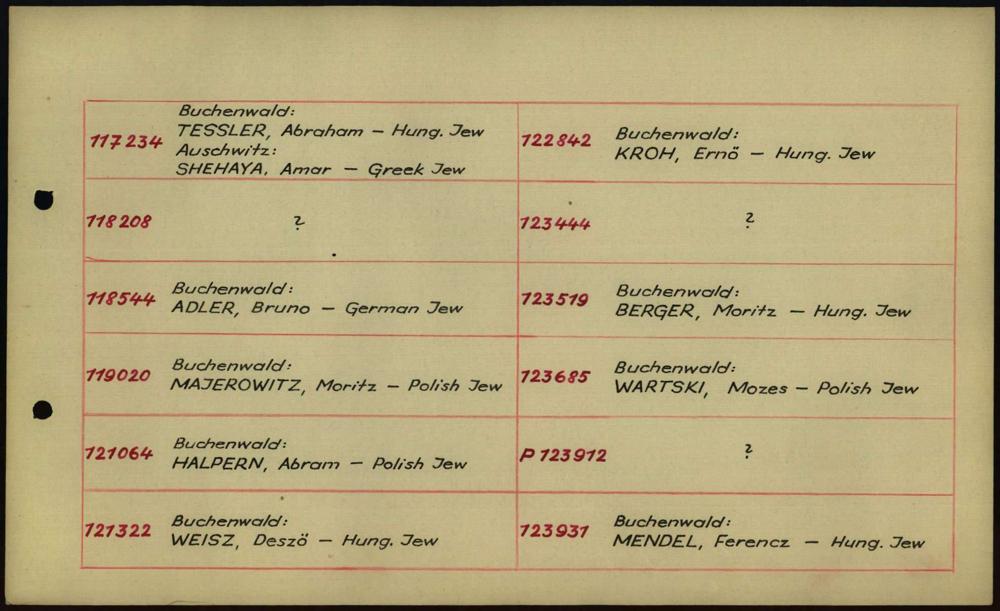 117234
Buchenwald:
TESSLER, Abraham – Hung. Jew
Auschwitz:
SHEHAYA, Amar – Greek Jew
118208
?
118544
Buchenwald:
ADLER, Bruno – German Jew
119020
Buchenwald:
MAJEROWITZ, Moritz – Polish Jew
121064
Buchenwald:
HALPERN, Abram – Polish Jew
121322
Buchenwald:
WEISZ, Deszö – Hung. Jew
122842
Buchenwald:
KROH, Ernö – Hung. Jew
123444
?
123519
Buchenwald:
BERGER, Moritz – Hung. Jew
123685
Buchenwald:
WARTSKI, Mozes – Polish Jew
P 123912
?
123931
Buchenwald:
MENDEL, Ferencz – Hung. Jew